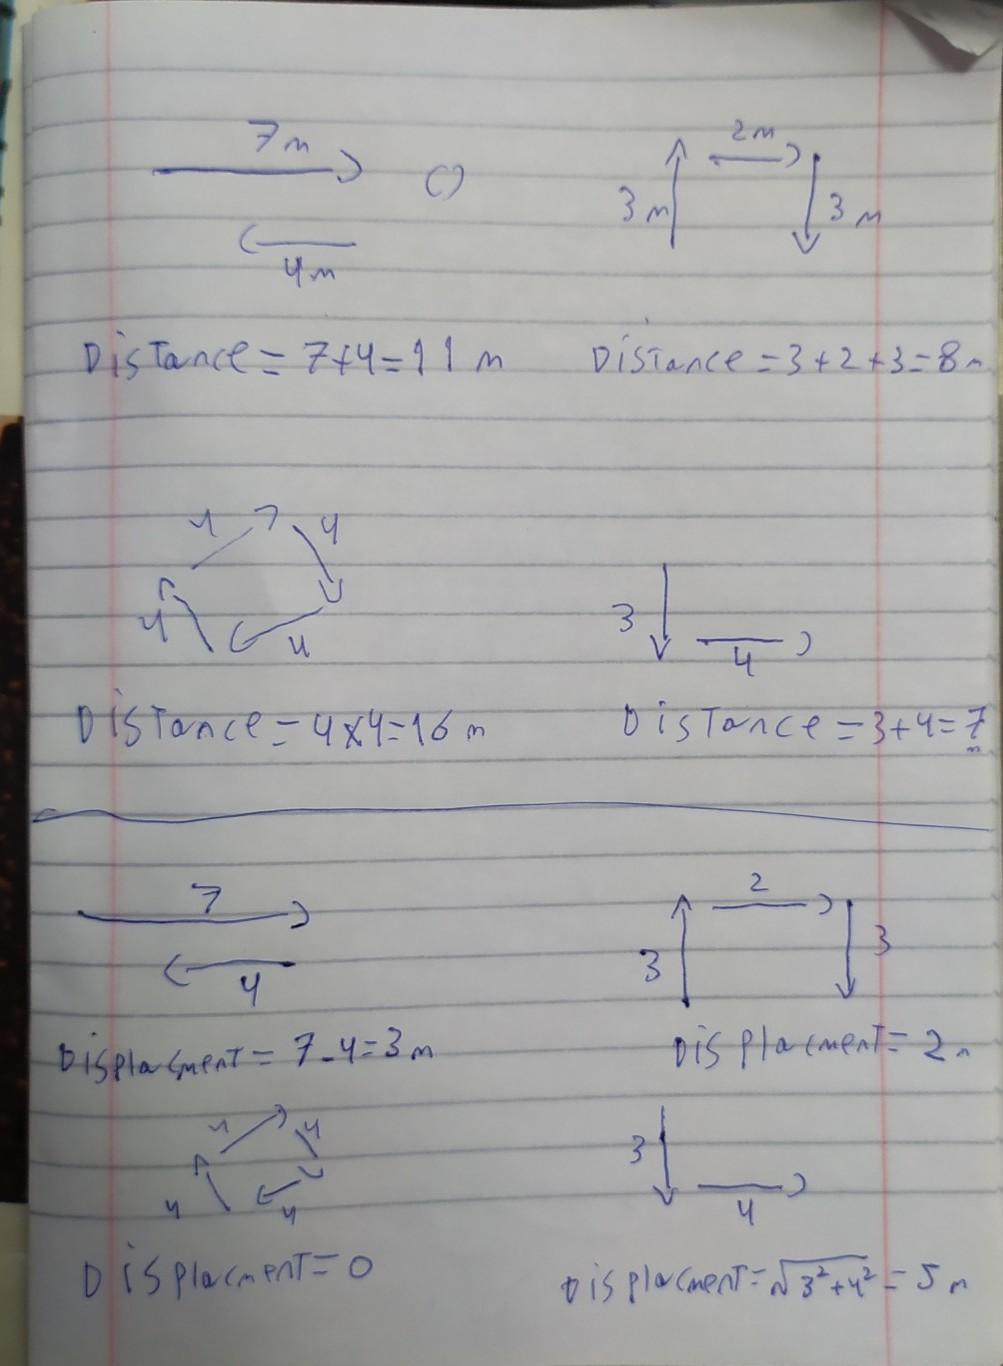 7m 2m
3m 3m
4m
Distance = 7+4=11 m Distance = 3+2+3=8m
4 4
4 4 3 4
Distance = 4×4=16 m Distance = 3+4=7
m
7 2
4 3 3
Displacment = 7-4=3m Displacment = 2m
4 4 3
4 4 4
Displacment = 0 Displacment = √3²+4² = 5m